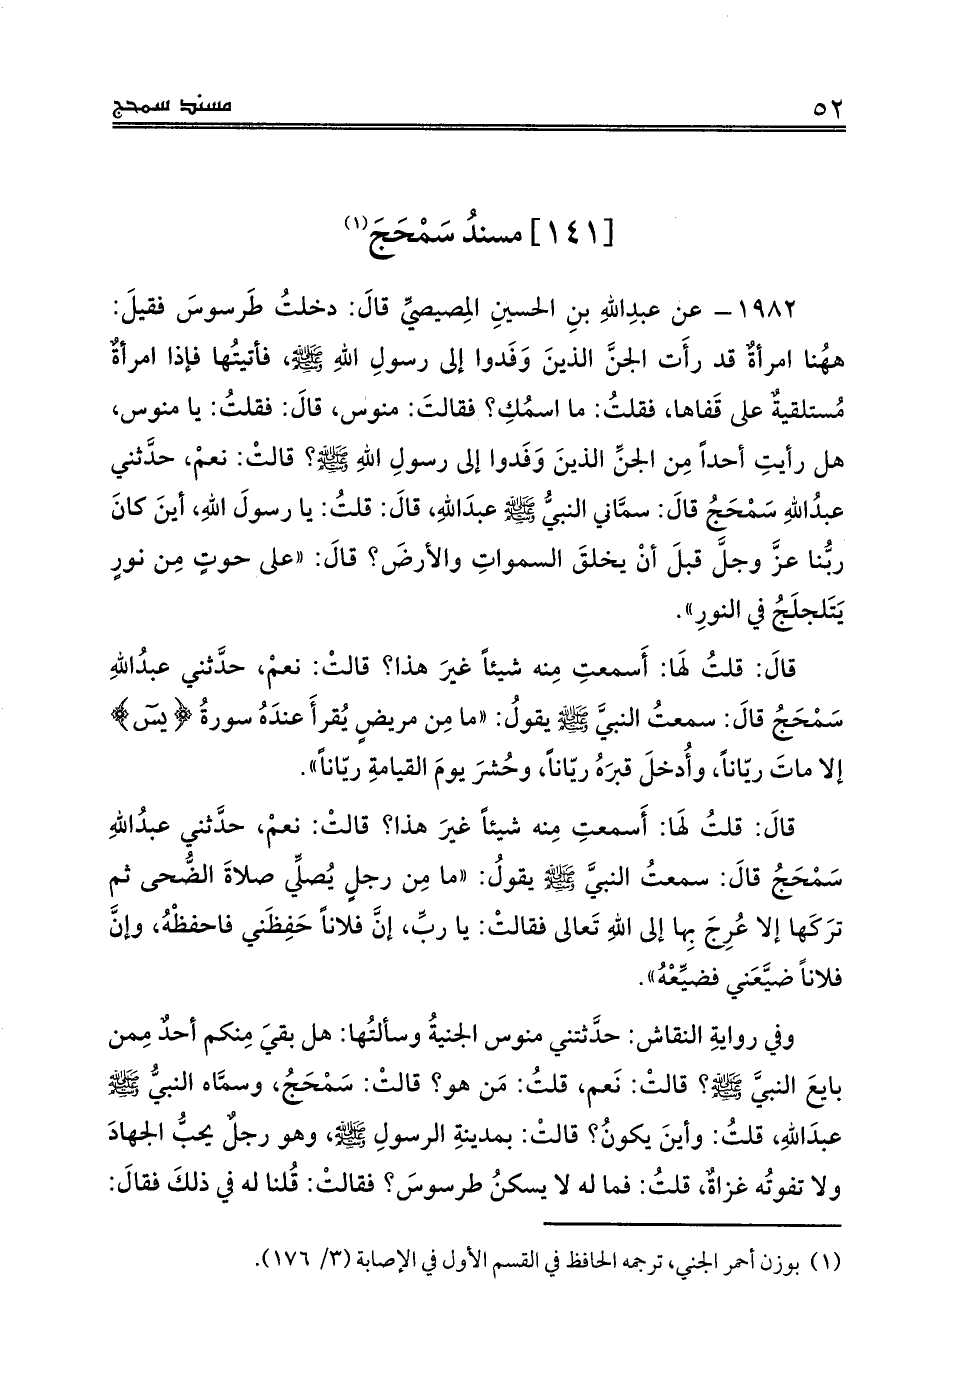 ٥٢
مسند سمحج
[١٤١] مسندُ سَمْحَجَ(١)
١٩٨٢ – عن عبدِاللهِ بنِ الحسينِ المِصيصيِّ قالَ: دخلتُ طَرسوسَ فقيلَ:
ههُنا امرأةٌ قد رأَت الجنَّ الذينَ وَفَدوا إلى رسولِ اللهِ ﷺ، فأتيتُها فإذا امرأةٌ
مُستلقيةٌ على قَفاها، فقلتُ: ما اسمُكِ؟ فقالتَ: منوس، قالَ: فقلتُ: يا منوس،
هل رأيتِ أحداً مِن الجنِّ الذينَ وَفَدوا إلى رسولِ اللهِ ﷺ؟ قالتْ: نعمْ، حدَّثني
عبدُاللهِ سَمْحَجُ قالَ: سمَّاني النبيُّ ﷺ عبدَاللهِ، قالَ: قلتُ: يا رسولَ اللهِ، أينَ كانَ
ربُّنا عزَّ وجلَّ قبلَ أنْ يخلقَ السمواتِ والأرضَ؟ قالَ: «على حوتٍ مِن نورٍ
يَتَلجلَجُ في النورِ».
قالَ: قلتُ لَها: أَسمعتِ مِنه شيئاً غيرَ هذا؟ قالتْ: نعمْ، حدَّثني عبدُاللهِ
سَمْحَجُ قالَ: سمعتُ النبيَّ ﷺ يقولُ: «ما مِن مريضٍ يُقرأَ عندَهُ سورةُ ﴿يسٓ﴾
إلا ماتَ ريّاناً، وأُدخلَ قبرَهُ ريّاناً، وحُشرَ يومَ القيامةِ ريّاناً».
قالَ: قلتُ لَها: أَسمعتِ مِنه شيئاً غيرَ هذا؟ قالتْ: نعمْ، حدَّثني عبدُاللهِ
سَمْحَجُ قالَ: سمعتُ النبيَّ ﷺ يقولُ: «ما مِن رجلٍ يُصلِّي صلاةَ الضُّحى ثم
تركَها إلا عُرِجَ بِها إلى اللهِ تَعالى فقالتْ: يا ربِّ، إنَّ فلاناً حَفِظَني فاحفظْهُ، وإنَّ
فلاناً ضيَّعَني فضيِّعْهُ».
وفي روايةِ النقاش: حدَّثتني منوس الجنيةُ وسألتُها: هل بقيَ مِنكم أحدٌ مِمن
بايعَ النبيَّ ﷺ؟ قالتْ: نَعم، قلتُ: مَن هو؟ قالتْ: سَمْحَجُ، وسمَّاه النبيُّ ﷺ
عبدَاللهِ، قلتُ: وأينَ يكونُ؟ قالتْ: بمدينةِ الرسولِ ﷺ، وهو رجلٌ يحبُّ الجهادَ
ولا تفوتُه غزاةٌ، قلتُ: فما له لا يسكنُ طرسوسَ؟ فقالتْ: قُلنا له في ذلكَ فقالَ:
(١) بوزن أحمر الجني، ترجمه الحافظ في القسم الأول في الإصابة (٣/ ١٧٦).